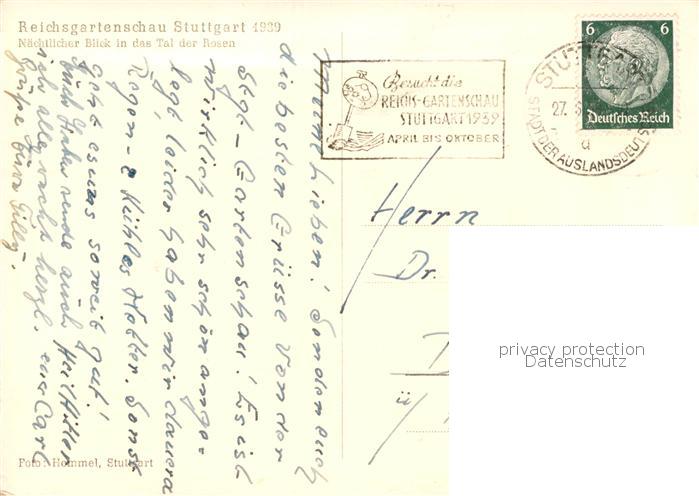 Reichsgartenschau Stuttgart 1939
Nächtlicher Blick in das Tal der Rosen
Besucht die
REICHS-GARTENSCHAU
STUTTGART 1939
APRIL BIS OKTOBER
STUTTGART
27.
a
STADT DER AUSLANDSDEUTSCHEN
6 6
Deutsches Reich
Meine Lieben! Senden euch
die besten Grüsse von der
Stgt-Gartenschau! Es ist
wirklich sehr schön ange-
legt, leider haben wir dauernd
Regen- u. kühles Wetter. Sonst
geht es uns soweit gut!
Heil Hitler
alle recht herzl. Carl
Herrn
Dr.
D
ü/
privacy protection
Datenschutz
Foto: Hommel, Stuttgart